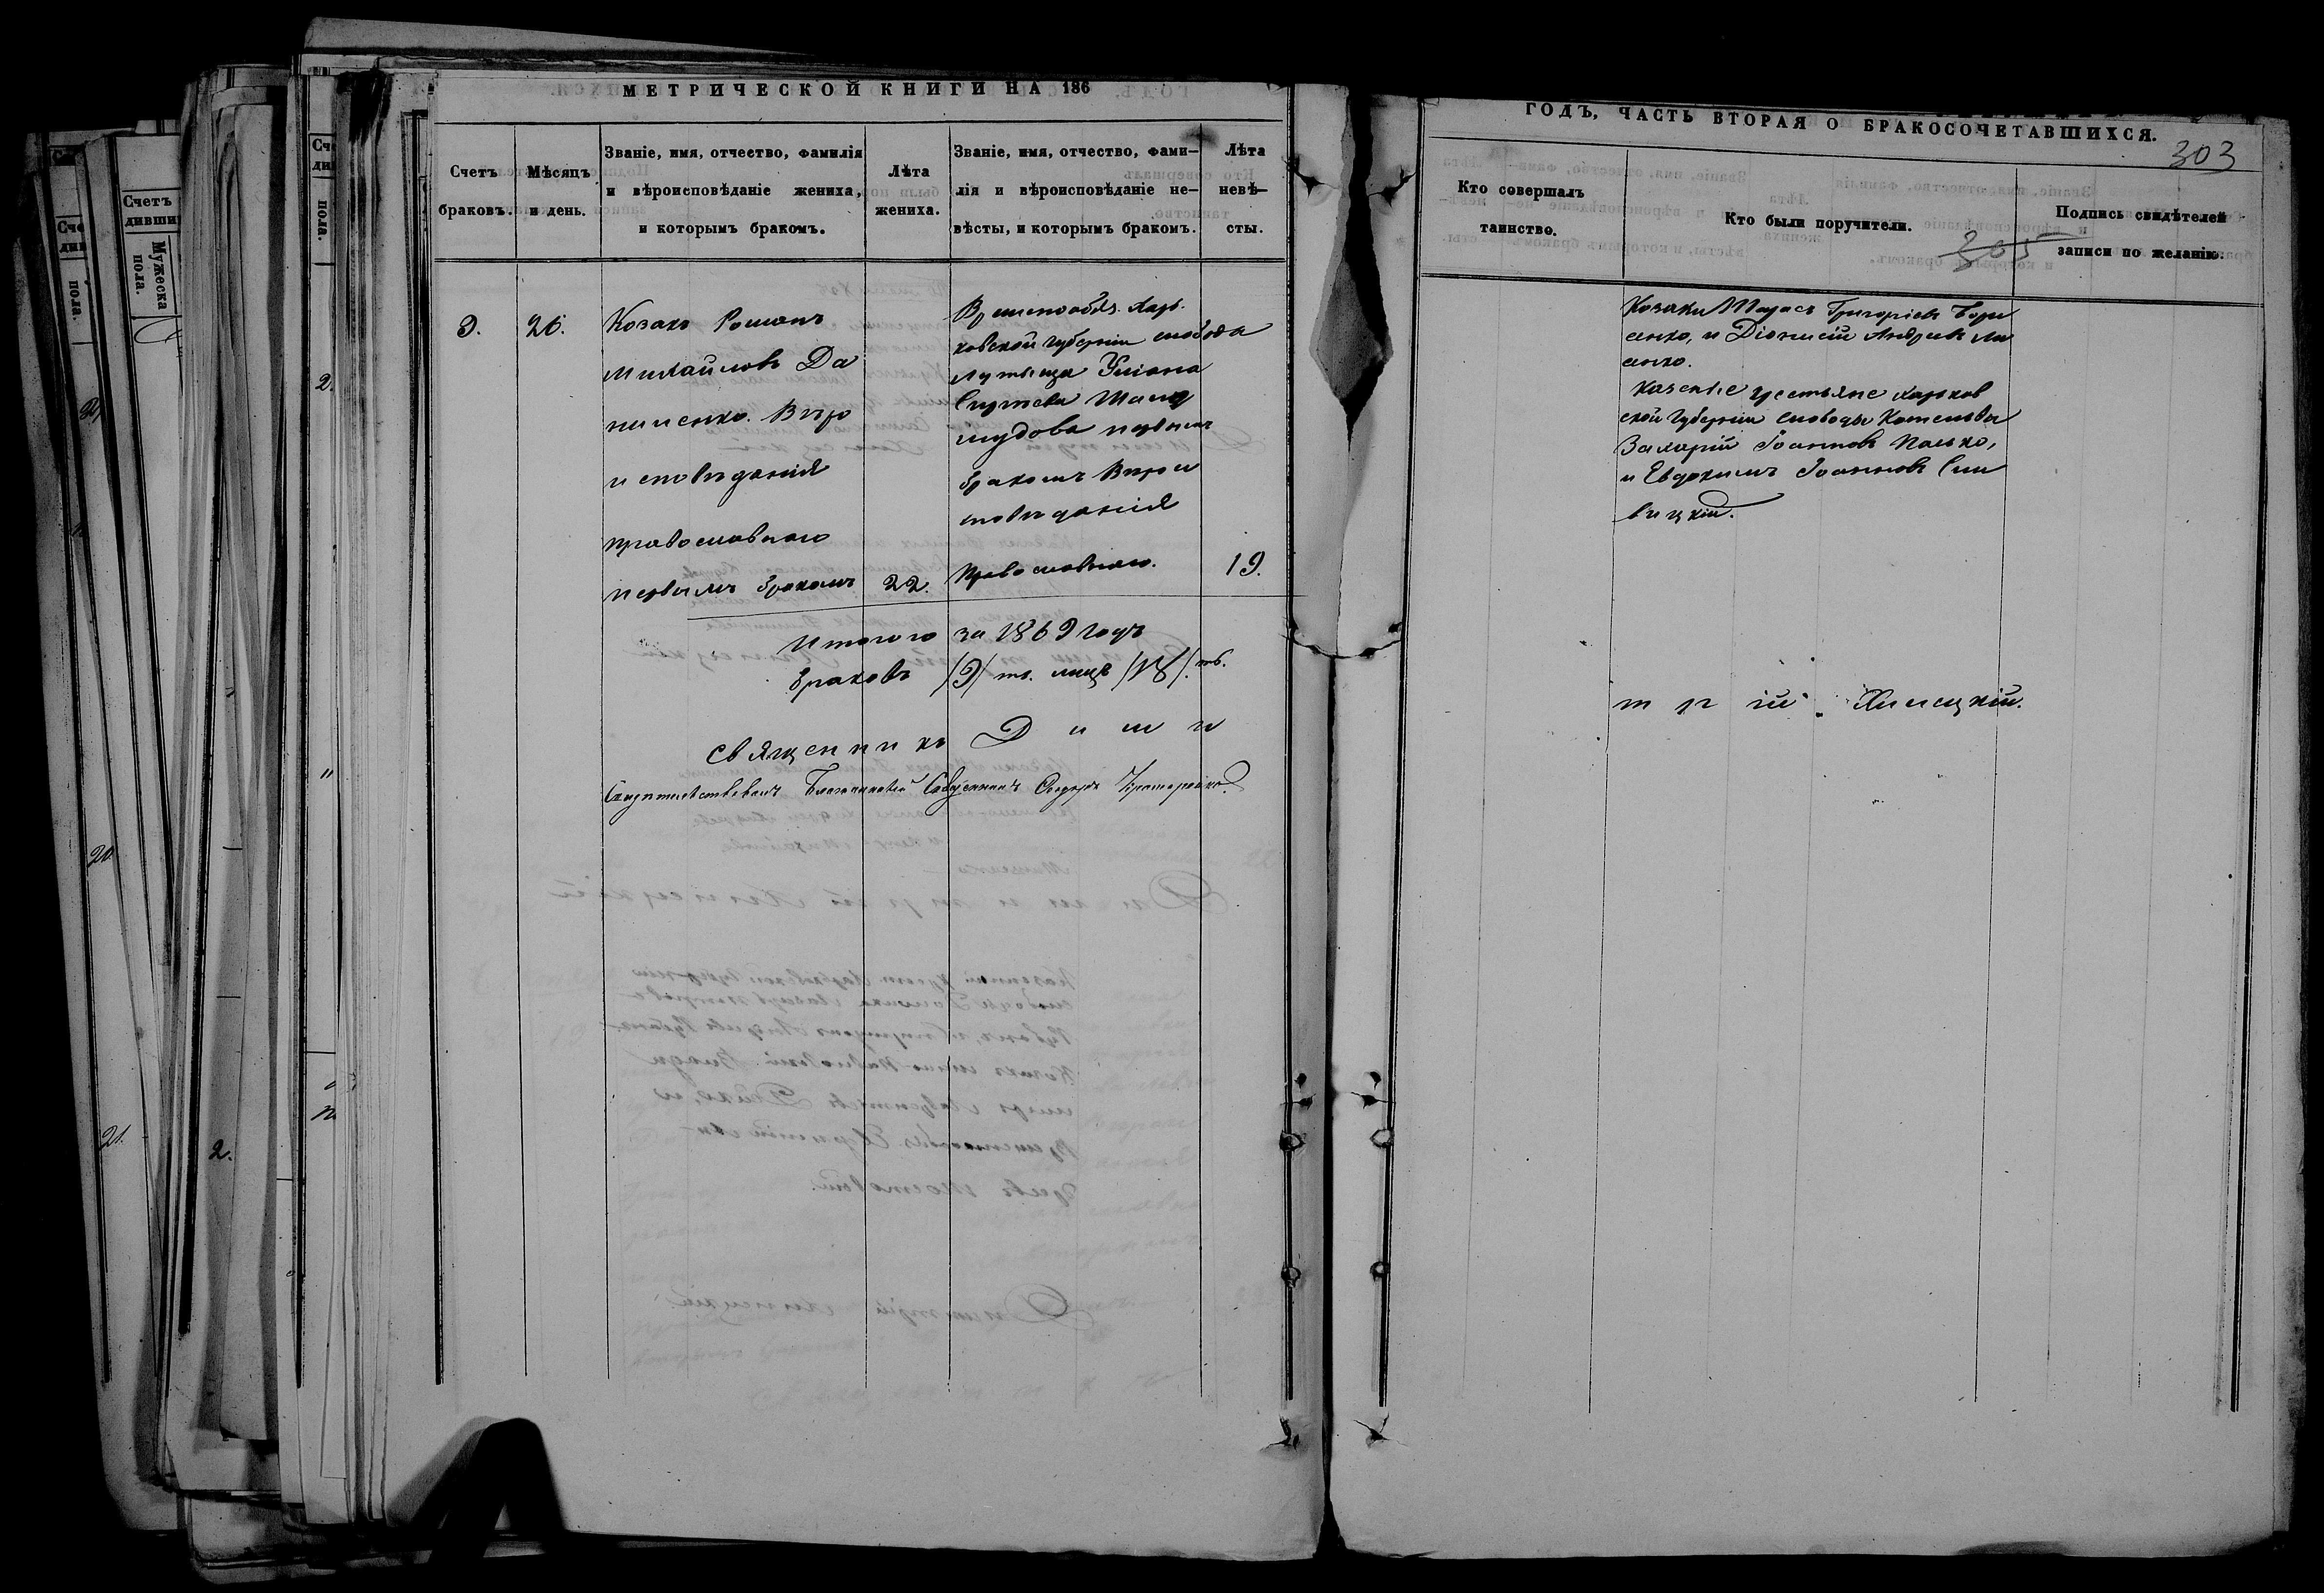 МЕТРИЧЕСКОЙ КНИГИ НА 186
Счетъ браковъ.
Мѣсяцъ и день.
Званіе, имя, отчество, фамилія
и вѣроисповѣданіе жениха,
и которымъ бракомъ.
Лѣта
жениха.
Званіе, имя, отчество, фами-
лія и вѣроисповѣданіе не-
вѣсты, и которымъ бракомъ.
Лѣта
невѣ-
сты.
9.
26.
Козакъ Романъ
Михайловъ Да
ниленко. Вѣро
исповѣданія
православнаго
первымъ бракомъ
22.
Временнообяз. Харь-
ковской Губерніи слобода
Уліана
первымъ
бракомъ Вѣрои
сповѣданія
Православнаго.
19.
Итого за 1869 годъ
браковъ /9/ ть. лицъ /18/ ть.
Священникъ Дими
Свидѣтельствовалъ Благочинный Священникъ
ГОДЪ, ЧАСТЬ ВТОРАЯ О БРАКОСОЧЕТАВШИХСЯ.
303
Кто совершалъ
таинство.
Кто были поручители.
305
Подпись свидѣтелей
записи по желанію.
Козаки Тарасъ Григоріевъ Бори
сенко, и Діонисій Андреевъ Ли
сенко.
Казенные крестьяне Харьков
ской Губерніи Слободы Котельвы
Захарій Іоанновъ Палько,
и Евдокимъ Іоанновъ Сли
вицкій.
т р ій Хилецкій.
Счетъ
дивши
Мужеска
пола.
Сче
див
пола.
Сче
див
пола.
2.
20.
21.
2.